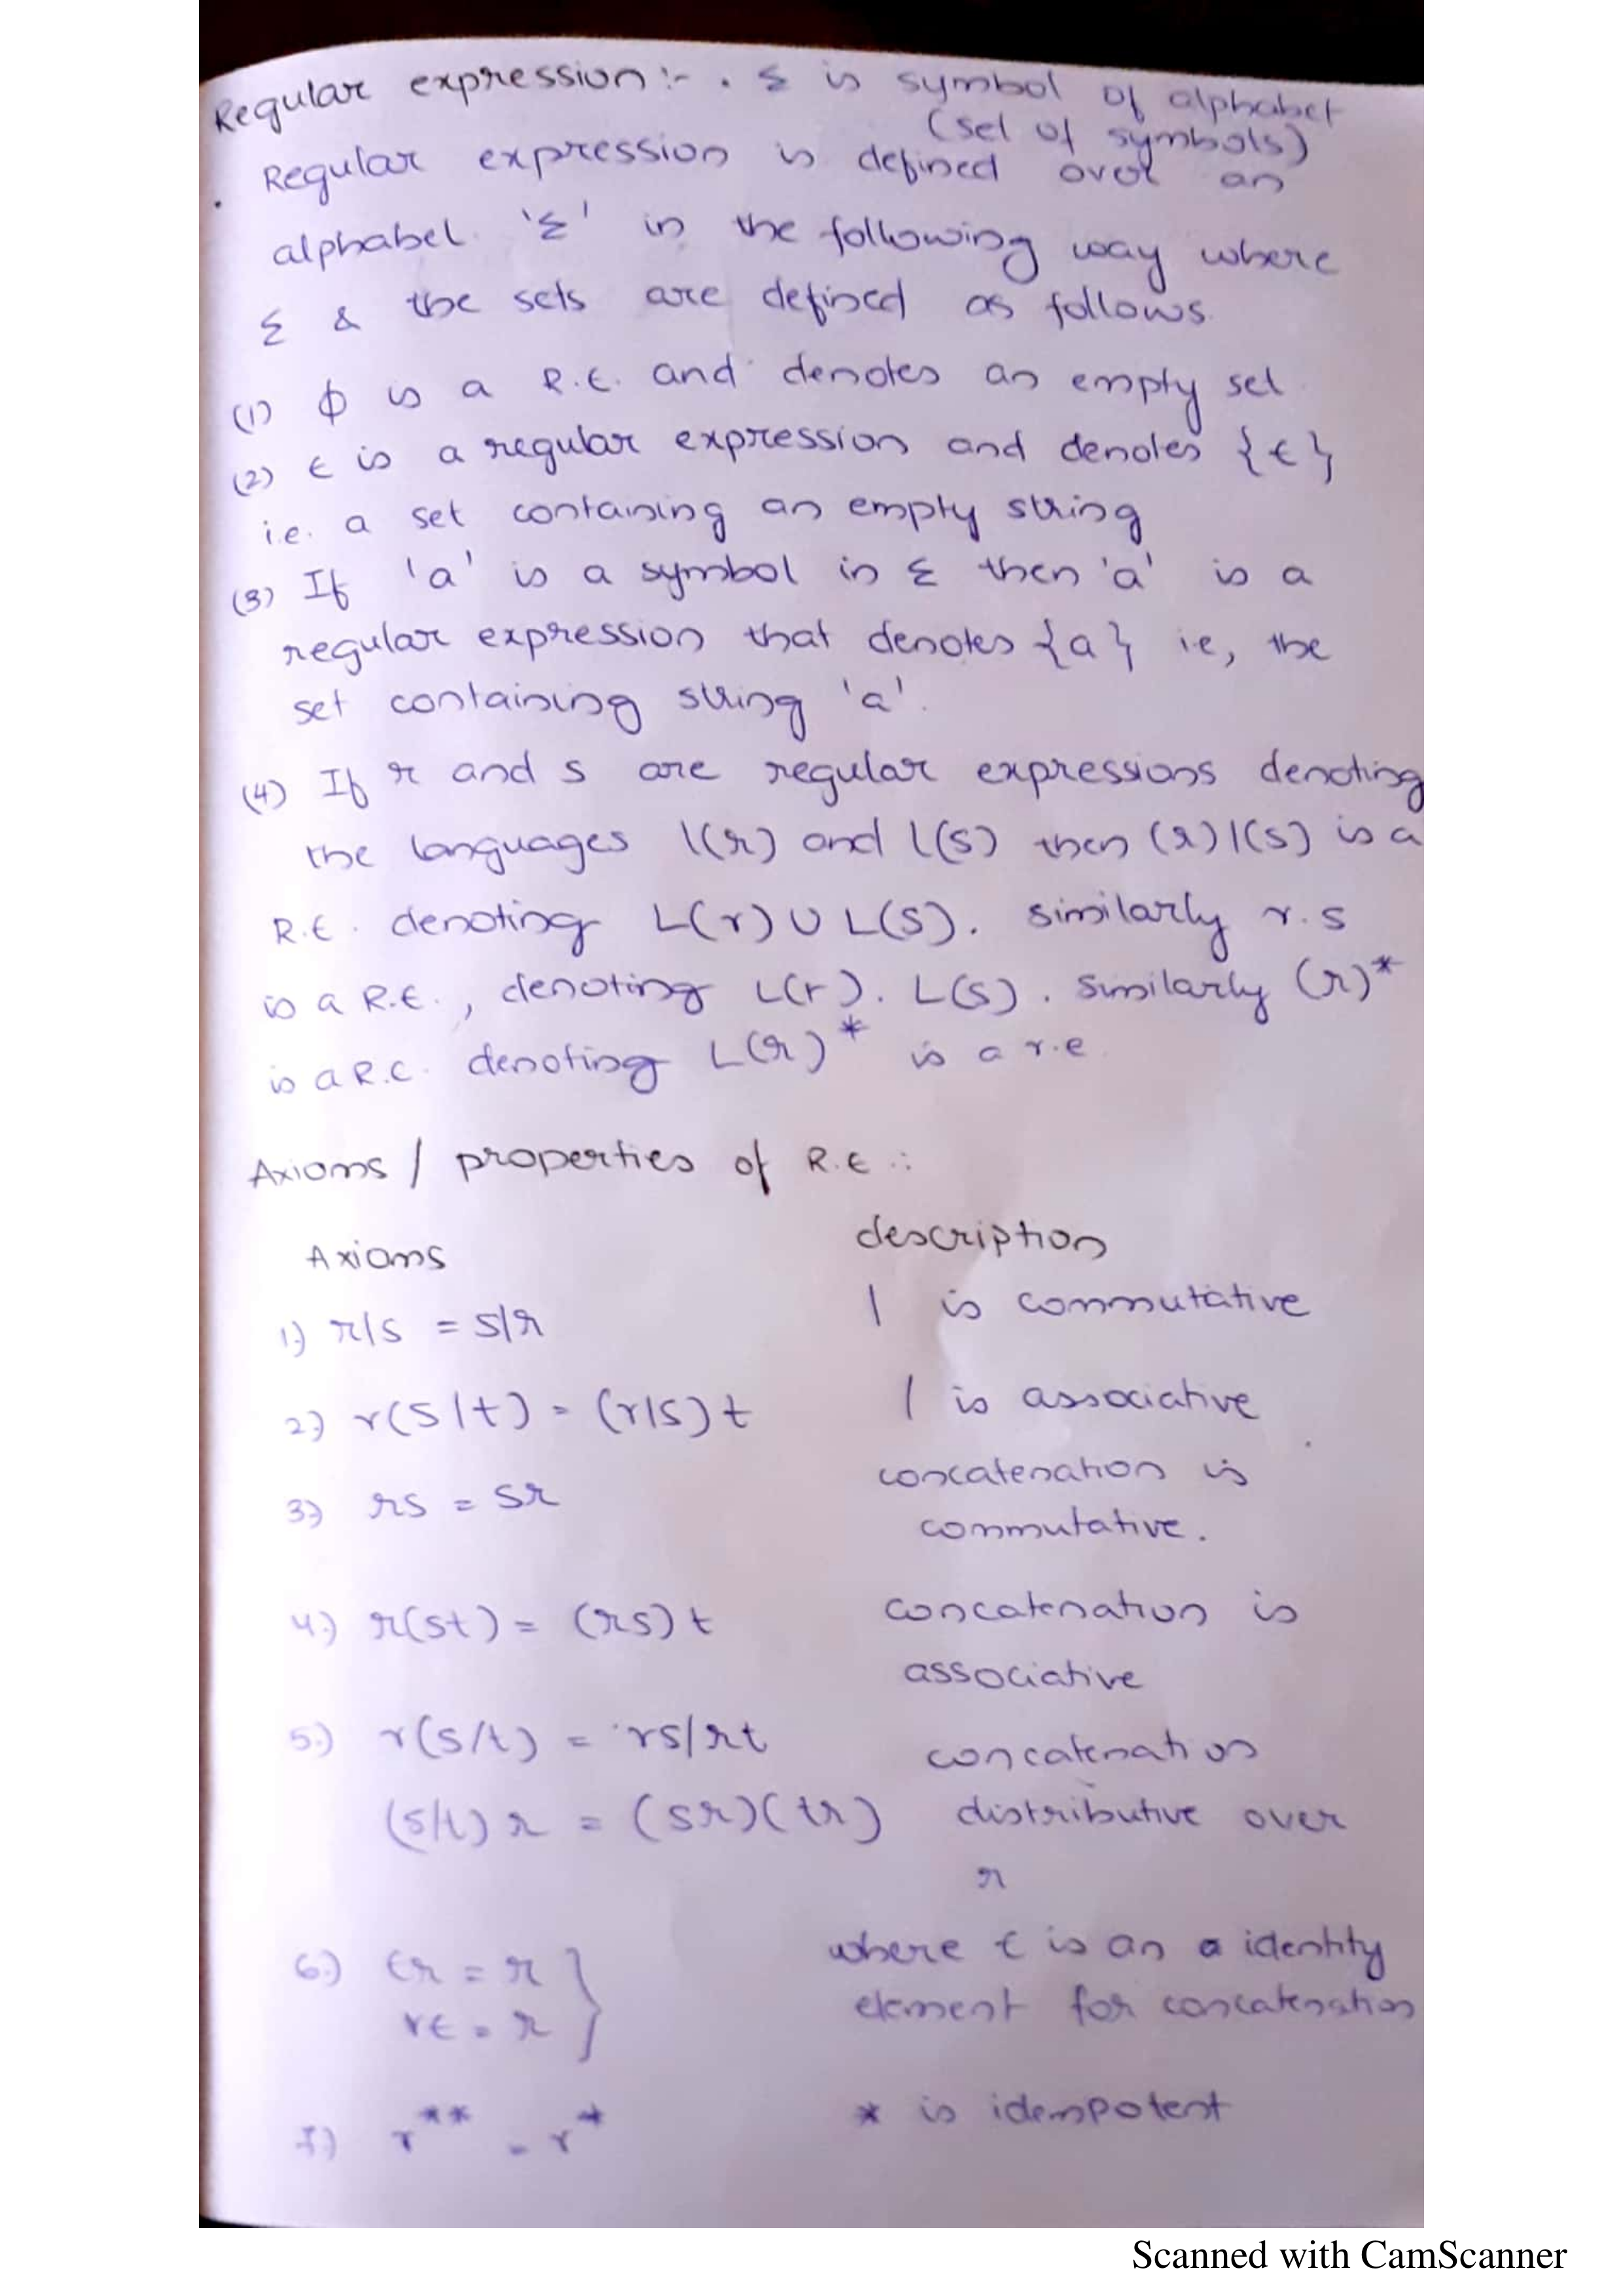 Regular expression:- . Σ is symbol of alphabet
(set of symbols)
. Regular expression is defined over an
alphabet 'Σ' in the following way where
Σ & the sets are defined as follows.
(1) ϕ is a R.E. and denotes an empty set
(2) ϵ is a regular expression and denotes {ϵ}
i.e. a set containing an empty string
(3) If 'a' is a symbol in Σ then 'a' is a
regular expression that denotes {a} i.e, the
set containing string 'a'.
(4) If r and s are regular expressions denoting
the languages l(r) and l(s) then (r)|(s) is a
R.E. denoting L(r) ∪ L(s). similarly r.s
is a R.E., denoting L(r). L(s). similarly (r)*
is a R.C. denoting L(r)* is a r.e.
Axioms / properties of R.E.:
Axioms description
1) r|s = s|r | is commutative
2) r(s|t) = (r|s)t | is associative
3) rs = sr concatenation is
commutative.
4) r(st) = (rs)t concatenation is
associative
5) r(s/t) = rs/rt concatenation
(s/t)r = (sr)(tr) distributive over
r
6) ϵr = r } where ϵ is an a identity
rϵ = r element for concatenation
7) r** = r* * is idempotent
Scanned with CamScanner